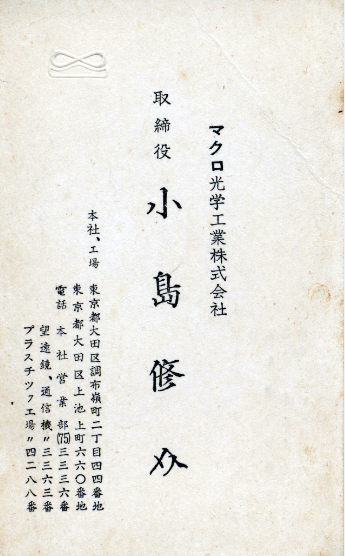 マクロ光学工業株式会社
取締役
小島修
本社、工場
東京都大田区調布嶺町二丁目四四番地
東京都大田区上池上町六六〇番地
電話 本社営業部(75)三三三六番
望遠鏡、通信機〃三三六三番
プラスチツク工場〃四二八八番